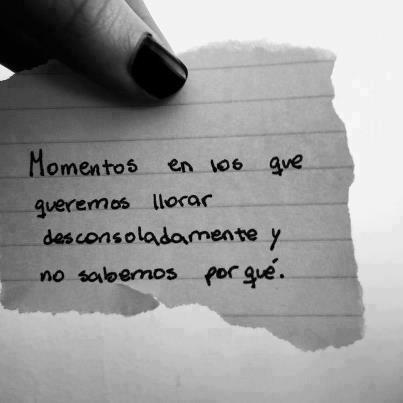 Momentos en los que
queremos llorar
desconsoladamente y
no sabemos por qué.